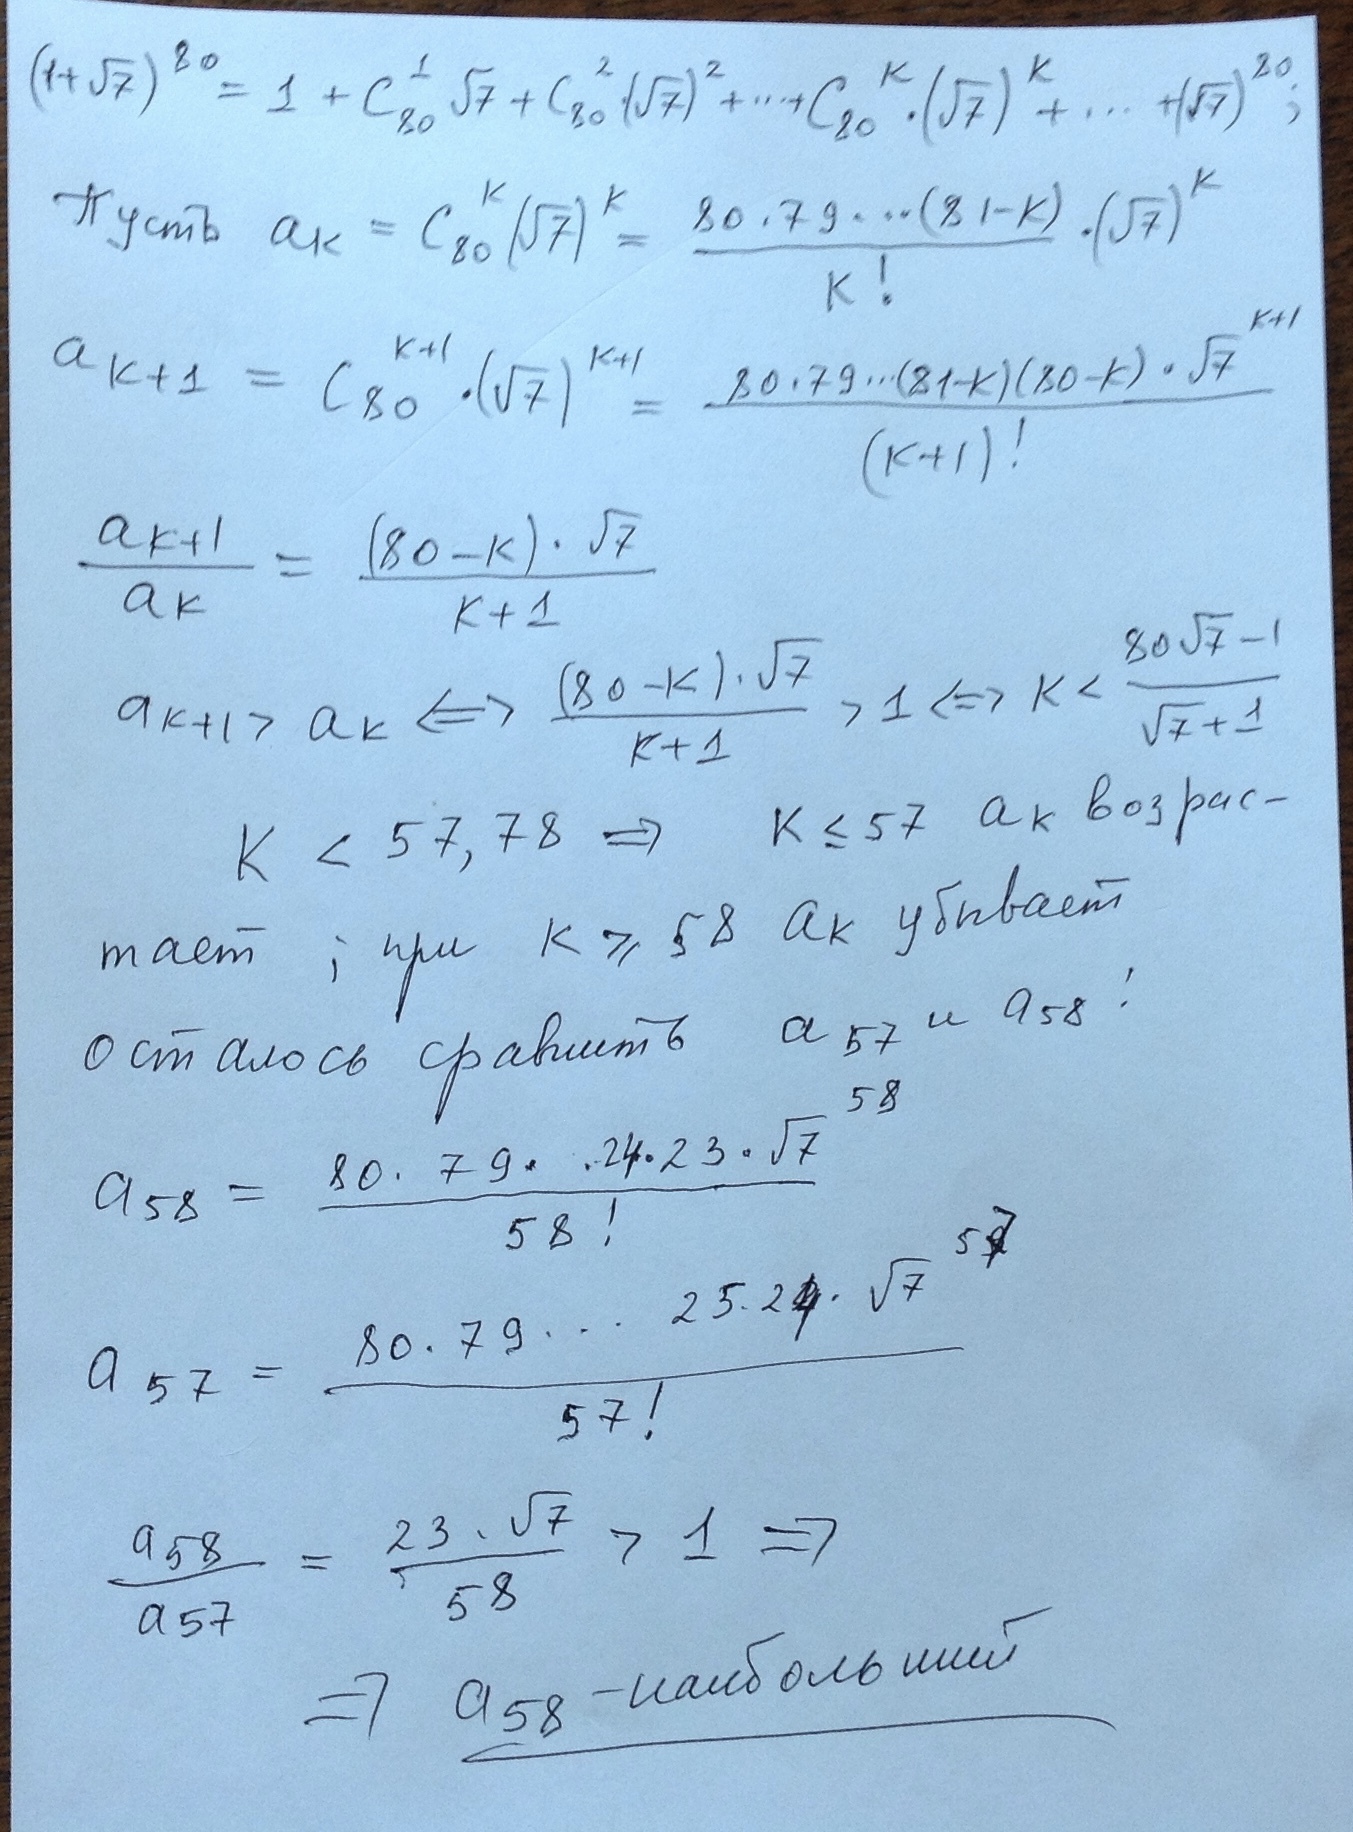 (1+√7)^80 = 1 + C_80^1 √7 + C_80^2 · (√7)^2 + ... + C_80^K · (√7)^K + ... + (√7)^80;
Пусть a_K = C_80^K (√7)^K = 80·79·...(81-K)/K! · (√7)^K
a_K+1 = C_80^K+1 · (√7)^K+1 = 80·79...(81-K)(80-K)·√7^K+1/(K+1)!
a_K+1/a_K = (80-K)·√7/K+1
a_K+1 > a_K <=> (80-K)·√7/K+1 > 1 <=> K < 80√7-1/√7+1
K < 57,78 => K ≤ 57 a_K возрас-
тает ; при K ≥ 58 a_K убывает
осталось сравнить a_57 и a_58!
a_58 = 80·79· ..24·23·√7^58/58!
a_57 = 80·79... 25·24·√7^57/57!
a_58/a_57 = 23·√7/58 > 1 =>
=> a_58 - наибольший